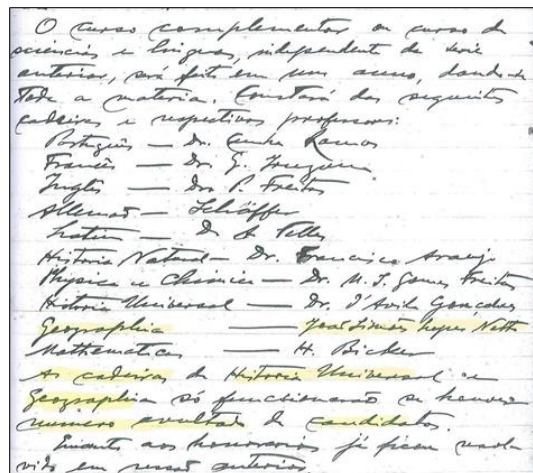 O curso complementar ou curso de
sciencias e linguas, independente de serie
anterior, sera feito em um anno, dando-se
toda a materia. Constará das seguintes
cadeiras e respectivos professores:
Portuguès — Dr. Cunha Ramos
Francês — Dr. G.
Inglês — Dr. P. Freitas
Allemão — Schäffer
Latim — Dr. Telles
Historia Natural — Dr. Francisco Araujo
Physica e Chimica — Dr. M. J. Gomes Freitas
Historia Universal — Dr. d'Avila Gonçalves
Geographia — João Simões Lopes Netto
Mathematicas — H. Bicker
As cadeiras de Historia Universal e
Geographia só funccionarão se houver
numero avultado de candidatos.
Quanto aos honorarios já ficou resol-
vido em sessão anterior.